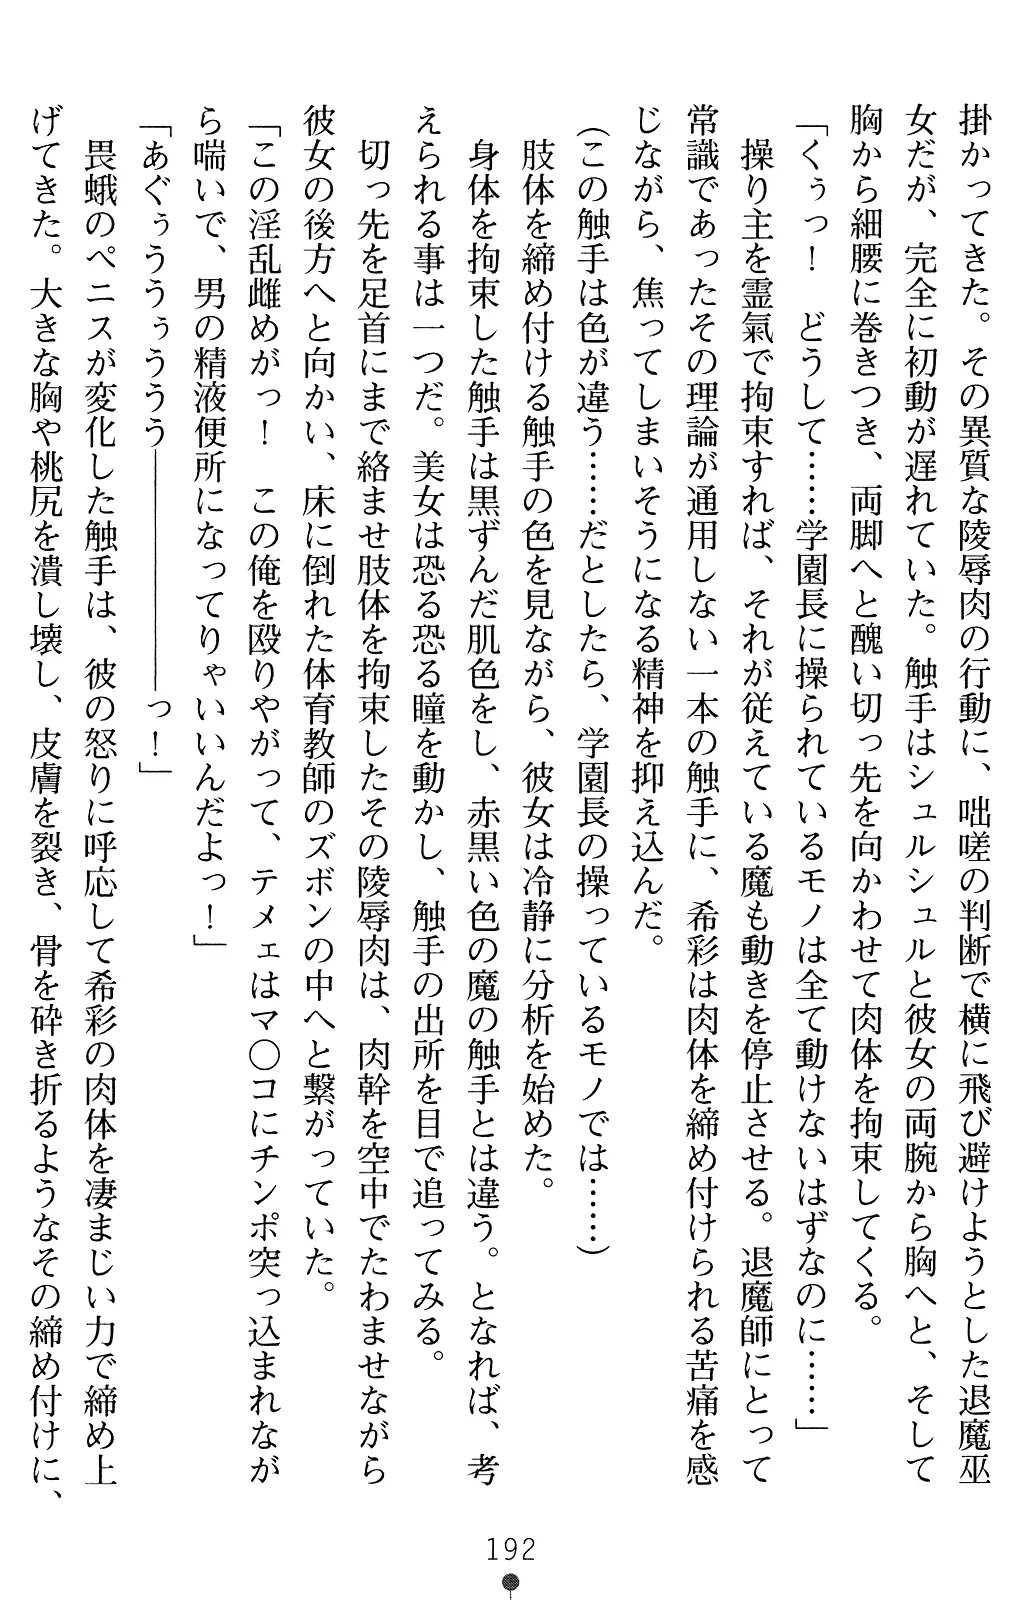 掛かってきた。その異質な陵辱肉の行動に、咄嗟の判断で横に飛び避けようとした退魔巫
女だが、完全に初動が遅れていた。触手はシュルシュルと彼女の両腕から胸へと、そして
胸から細腰に巻きつき、両脚へと醜い切っ先を向かわせて肉体を拘束してくる。
「くぅっ！　どうして……学園長に操られているモノは全て動けないはずなのに……」
　操り主を霊氣で拘束すれば、それが従えている魔も動きを停止させる。退魔師にとって
常識であったその理論が通用しない一本の触手に、希彩は肉体を締め付けられる苦痛を感
じながら、焦ってしまいそうになる精神を抑え込んだ。
（この触手は色が違う……だとしたら、学園長の操っているモノでは……）
　肢体を締め付ける触手の色を見ながら、彼女は冷静に分析を始めた。
　身体を拘束した触手は黒ずんだ肌色をし、赤黒い色の魔の触手とは違う。となれば、考
えられる事は一つだ。美女は恐る恐る瞳を動かし、触手の出所を目で追ってみる。
　切っ先を足首にまで絡ませ肢体を拘束したその陵辱肉は、肉幹を空中でたわませながら
彼女の後方へと向かい、床に倒れた体育教師のズボンの中へと繋がっていた。
「この淫乱雌めがっ！　この俺を殴りやがって、テメェはマ〇コにチンポ突っ込まれなが
ら喘いで、男の精液便所になってりゃいいんだよっ！」
「あぐぅううぅううう――――――っ！」
　畏蛾のペニスが変化した触手は、彼の怒りに呼応して希彩の肉体を凄まじい力で締め上
げてきた。大きな胸や桃尻を潰し壊し、皮膚を裂き、骨を砕き折るようなその締め付けに、
192